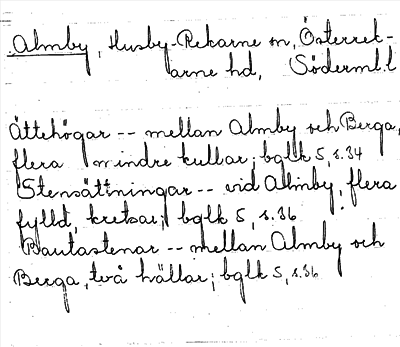 Almby, Husby-Rekarne sn, Österrek-
arne hd, Söderml.l
Ättehögar -- mellan Almby och Berga,
flera mindre kullar; bglk 5, s.34
Stensättningar -- vid Almby, flera
fylld, kretsar; bglk 5, s.36
Bautastenar -- mellan Almby och
Berga, två hällar; bglk 5, s.36